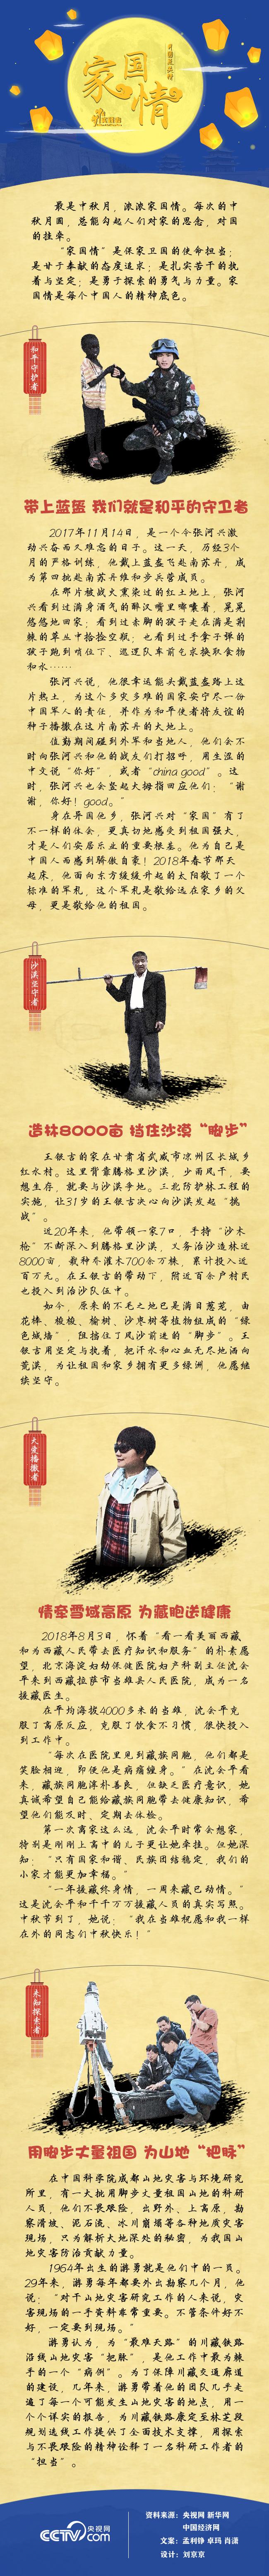 月圆是故乡
家国情
最是中秋月，浓浓家国情。每次的中
秋月圆，总能勾起人们对家的思念，对国
的挂牵。
“家国情”是保家卫国的使命担当；
是甘于奉献的态度追求；是扎实苦干的执
着与坚定；是勇于探索的勇气与力量。家
国情是每个中国人的精神底色。
和平守护者
带上蓝盔 我们就是和平的守卫者
2017年11月14日，是一个令张河兴激
动兴奋而又难忘的日子。这一天，历经3个
月的严格训练，他戴上蓝盔飞赴南苏丹，成
为第四批赴南苏丹维和步兵营成员。
在那片被战火熏染过的红土地上，张河
兴看到过满身酒气的醉汉嘴里嘟囔着，晃晃
悠悠地回家；看到过赤脚的孩子走在满是荆
棘的草丛中捡捡空瓶；也看到过手拿子弹的
孩子跑到哨位下、巡逻队车前乞求换取食物
和水……
张河兴说，他很幸运能头戴蓝盔踏上这
片热土，为这个多灾多难的国家安宁尽一份
中国军人的责任，并作为和平使者将友谊的
种子播撒在这片南苏丹的大地上。
值勤期间碰到外军和当地人，他们会不
时向张河兴和他的战友们打招呼，用生涩的
中文说“你好”，或者“china good”。这
时，张河兴也会竖起大拇指回应他们：“谢
谢，你好！good。”
身在异国他乡，张河兴对“家国”有了
不一样的体会，更真切地感受到祖国强大，
才是人们安居乐业的重要根基。他为自己是
中国人而感到骄傲自豪！2018年春节那天
起床，他面向东方缓缓升起的太阳敬了一个
标准的军礼，这个军礼是敬给远在家乡的父
母，更是敬给他的祖国。
沙漠坚守者
造林8000亩 挡住沙漠“脚步”
王银吉的家在甘肃省武威市凉州区长城乡
红水村。这里背靠腾格里沙漠，少雨风干，要
想生存，就要与沙漠争地。三北防护林工程的
实施，让31岁的王银吉决心向沙漠发起“挑
战”。
近20年来，他带领一家7口，手持“沙木
枪”不断深入到腾格里沙漠，义务治沙造林近
8000亩，栽种乔灌木700余万株，累计投入近
百万元。在王银吉的带动下，附近百余户村民
也投入到治沙队伍中。
如今，原来的不毛之地已是满目葱茏，由
花棒、梭梭、榆树、沙枣树等植物组成的“绿
色城墙”，阻挡住了风沙前进的“脚步”。王
银吉用坚定与执着，把汗水和心血无尽地洒向
荒漠，为让祖国和家乡拥有更多绿洲，他愿继
续坚守。
大爱播撒者
情牵雪域高原 为藏胞送健康
2018年8月3日，怀着“看一看美丽西藏
和为西藏人民带去医疗知识和服务”的朴素愿
望，北京海淀妇幼保健医院妇产科副主任沈会
平来到西藏拉萨市当雄县人民医院，成为一名
援藏医生。
在平均海拔4000多米的当雄，沈会平克
服了高原反应，克服了饮食不习惯，很快投入
到工作中。
“每次在医院里见到藏族同胞，他们都是
笑脸相迎，即便他是病痛缠身。”在沈会平看
来，藏族同胞淳朴善良，但缺乏医疗意识，她
真诚希望自己能给藏族同胞带去健康知识，希
望他们能及时、定期去体检。
第一次离家这么远，沈会平时常会想家，
特别是刚刚上高中的儿子更让她牵挂。但她深
知：“只有国家和谐、民族团结稳定，我们的
小家才能更加幸福。”
“一年援藏终身情，一周来藏已动情。”
这是沈会平和千千万万援藏人员的真实写照。
中秋节到了，她说：“我在当雄祝愿和我一样
在外的同志们中秋快乐！”
未知探索者
用脚步丈量祖国 为山地“把脉”
在中国科学院成都山地灾害与环境研究
所里，有一大批用脚步丈量祖国山地的科研
人员，他们不畏艰险，出野外、上高原，勘
察滑坡、泥石流、冰川崩塌等各种地质灾害
现场，只为解析大地深处的秘密，为我国山
地灾害防治贡献力量。
1964年出生的游勇就是他们中的一员。
29年来，游勇每年都要外出勘察几个月，他
说：“对于山地灾害研究工作的人来说，灾
害现场的一手资料非常重要。不管条件好不
好，一定要到现场。”
游勇认为，为“最难天路”的川藏铁路
沿线山地灾害“把脉”，是他工作中最为棘
手的一个“病例”。为了保障川藏交通廊道
的建设，几年来，游勇带着他的团队几乎走
遍了每一个可能发生山地灾害的地点，用一
个个详实的报告，为川藏铁路康定至林芝段
规划选线工作提供了全面技术支撑，用探索
与不畏艰险的精神诠释了一名科研工作者的
“担当”。
CCTV.com 央视网
资料来源：央视网 新华网
中国经济网
文案：孟利铮 卓玛 肖潇
设计：刘京京